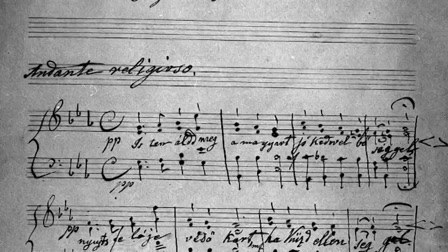 Andante religioso.
pp Is ten áldd meg a magyart jó kedvel bő séggel
pp
pp nyujts fe léje védő kart, ha küzd ellen ség gel